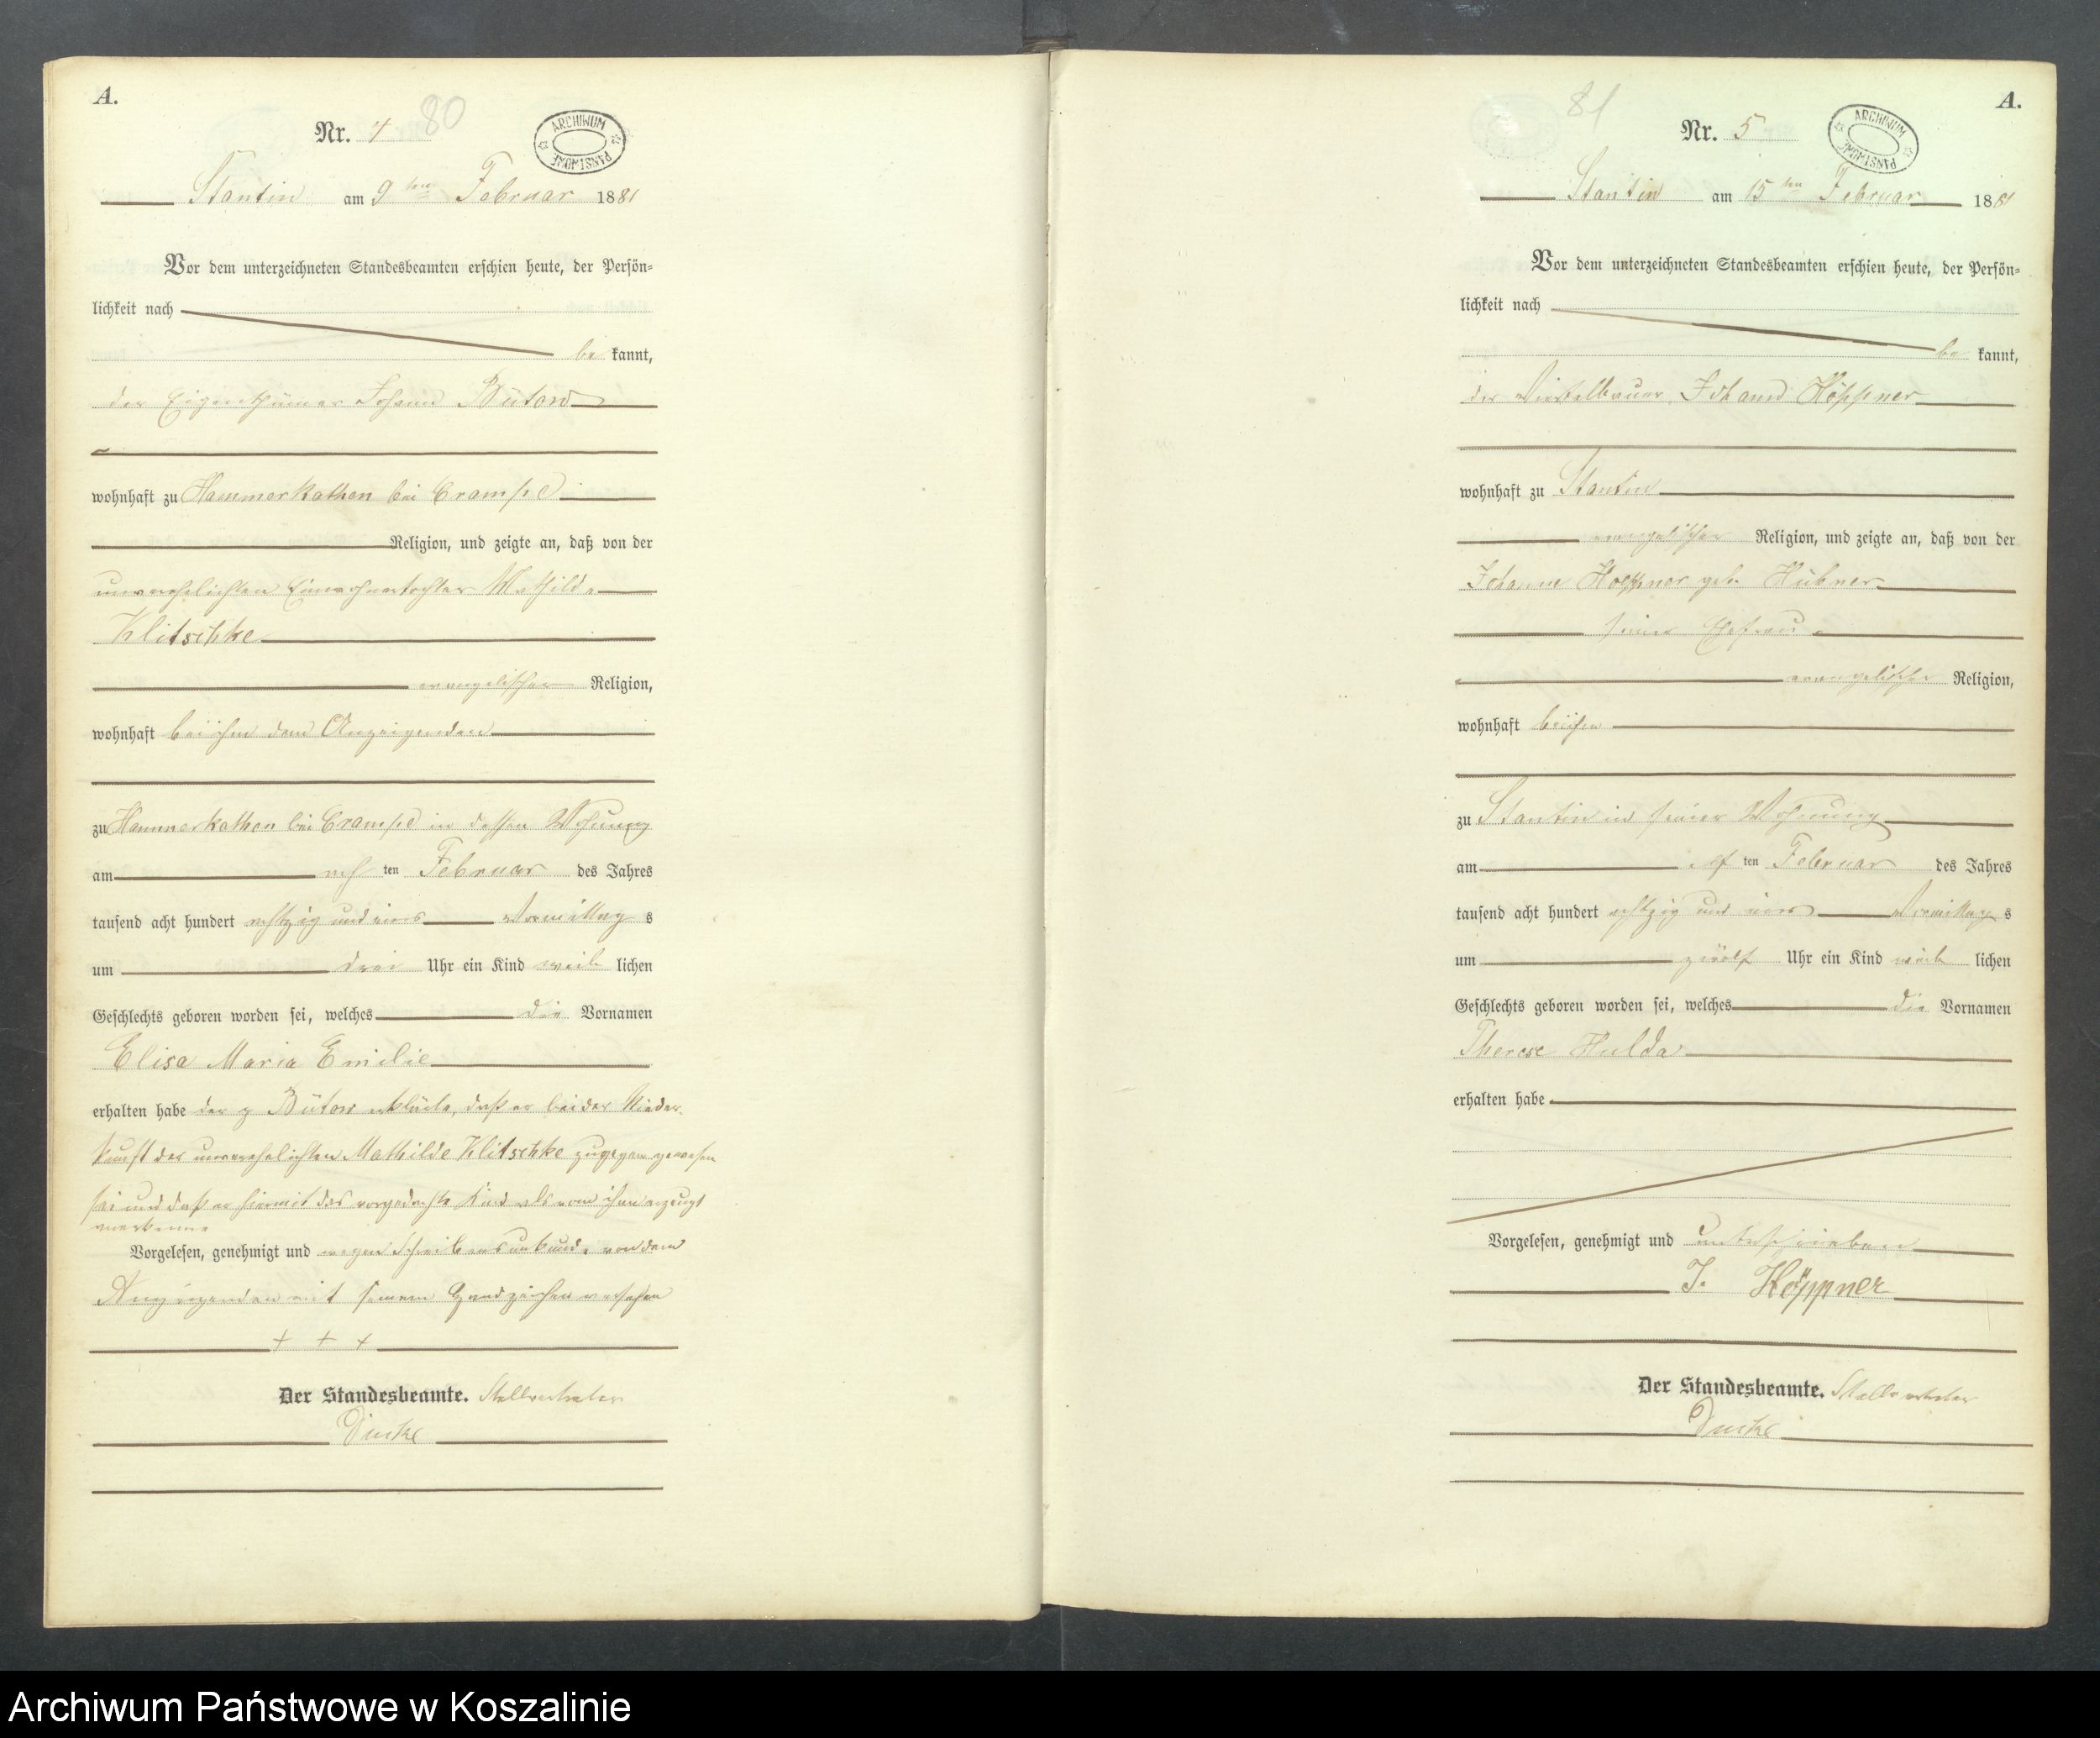 A.
80
Nr. 4
ARCHIWUM PAŃSTWOWE
Stantin am 9ten Februar 1881
Vor dem unterzeichneten Standesbeamten erschien heute, der Persön-
lichkeit nach
be kannt,
der Eigenthümer Johann Bütow
wohnhaft zu Hammerkathen bei Crampe
Religion, und zeigte an, daß von der
unverehelichten Einwohnertochter Mathilde
Klitschke
evangelischer Religion,
wohnhaft bei ihm dem Anzeigenden
zu Hammerkathen bei Crampe in dessen Wohnung
am acht ten Februar des Jahres
tausend acht hundert achtzig und eins Vormittag s
um drei Uhr ein Kind weib lichen
Geschlechts geboren worden sei, welches die Vornamen
Elisa Maria Emilie
erhalten habe der p Bütow erklärte, daß er bei der Nieder-
kunft der unverehelichten Mathilde Klitschke zugegen gewesen
sei und daß er hiermit das vorgedachte Kind als von ihm erzeugt
anerkenne
Vorgelesen, genehmigt und wegen Schreibensunkunde von dem
Anzeigenden mit seinem Handzeichen versehen
+ + +
Der Standesbeamte. Stellvertreter
A.
81
Nr. 5
ARCHIWUM PAŃSTWOWE
Stantin am 15ten Februar 1881
Vor dem unterzeichneten Standesbeamten erschien heute, der Persön-
lichkeit nach
be kannt,
der Viertelbauer Johann Höppner
wohnhaft zu Stantin
evangelischer Religion, und zeigte an, daß von der
Johanne Hoeppner geb. Hübner
seiner Ehefrau
evangelischer Religion,
wohnhaft bei ihm
zu Stantin in seiner Wohnung
am elf ten Februar des Jahres
tausend acht hundert achtzig und eins Vormittag s
um zwölf Uhr ein Kind weib lichen
Geschlechts geboren worden sei, welches die Vornamen
Therese Hulda
erhalten habe
Vorgelesen, genehmigt und unterschrieben
J. Höppner
Der Standesbeamte. Stellvertreter
Archiwum Państwowe w Koszalinie